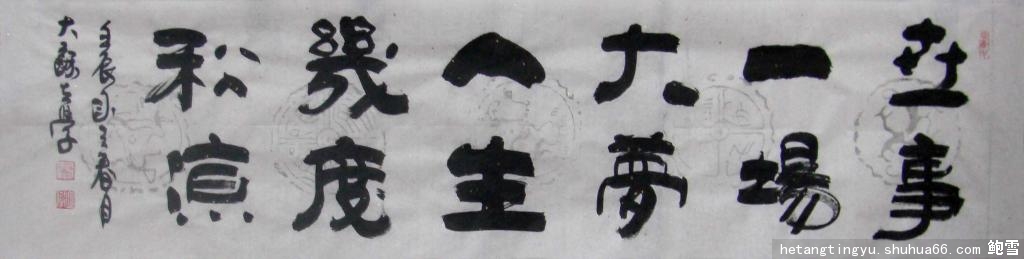 世事
一場
大夢
人生
幾度
秋涼
壬辰之春月
hetangtingyu.shuhua66.com 鲍雪